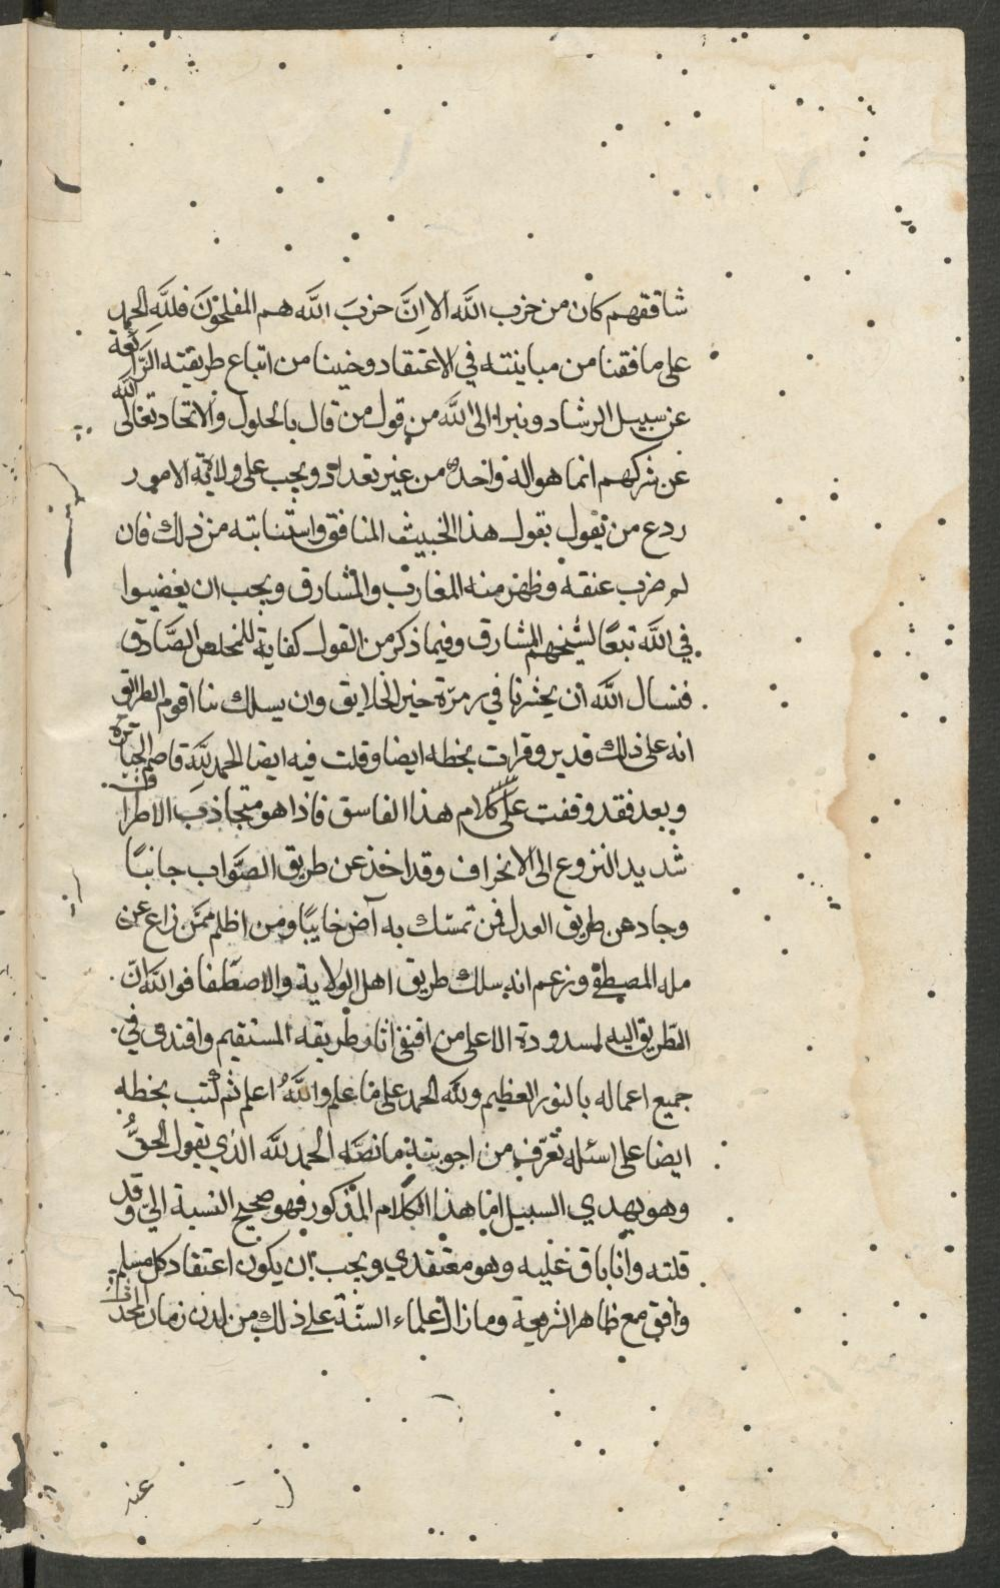 شاققهم كان من حزب الله الا اِنَّ حزبَ الله هم المفلحُونَ فلله الحمد
على ما فقنا من مباينته في الاعتقاد وخبنا من اتباع طريقته الزَّائغة
عن سبيل الرشاد ونبرا الى الله من قول من قال بالحلول والاتحاد تعالى الله
عن شركهم انما هو اله واحد من غير تعداد ويجب على ولاية الامور
ردع من يقول بقول هذا الخبيث المنافق واستنابته من ذلك فان
لم ضرب عنقه وظهر منه المغارب والمشارق ويجب ان يغضبوا
في الله تبعًا لشيخهم المشارق وفيما ذكر من القول كفاية للمخلص الصَّادق
فنسال الله ان يحشرنا في زمرة خير الخلايق وان يسلك بنا اقوم الطرائق
انه على ذلك قدير وقرات بخطه ايضا وقلت فيه ايضا الحمد لله قاصم الجبابرة
وبعد فقد وقفت على كلام هذا الفاسق فاذا هو متجاذب الاطراف
شديد النزوع الى الانحراف وقد اخذ عن طريق الصَّواب جانبًا
وحاد عن طريق العدل فمن تمسّك به آض خايبًا ومن اظلم ممَّن زاع عن
مله المصطفى وزعم انه سلك طريق اهل الولاية والاصطفا فوالله ان
الطريق اليه لمسدودة الا على من اقتفى اثار طريقه المستقيم واقتدى في
جميع اعماله بالنور العظيم ولله الحمد على ما علم واللهُ اعلم ثم كتب بخطه
ايضا على اسئله تعرّف من اجوبته ما نصَّه الحمد لله الذي يقول الحقَّ
وهو يهدي السبيل اما هذا الكلام المذكور فهو صحيح النسبة اليّ وقد
قلته وانا باق عليه وهو معتقدي ويجب ان يكون اعتقاد كل مسلم
وافق مع ظاهر الشريعة وما زال علماء السنّة على ذلك من لدن زمان
عند